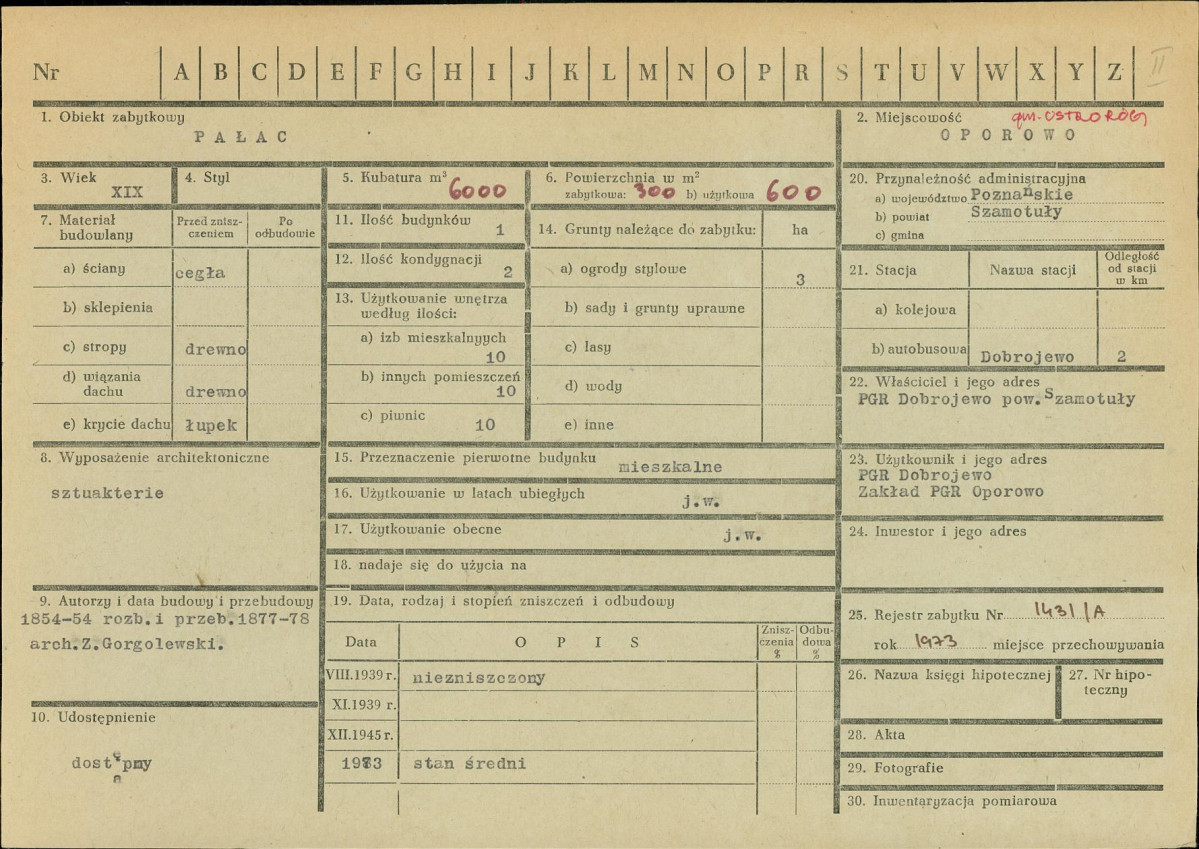 Nr A B C D E F G H I J K L M N O P R S T U V W X Y Z II
1. Obiekt zabytkowy
PAŁAC
2. Miejscowość gm. OSTRORÓG
OPOROWO
3. Wiek
XIX
4. Styl
5. Kubatura m³ 6000
6. Powierzchnia w m²
zabytkowa: 300 b) użytkowa 600
20. Przynależność administracyjna
a) województwo Poznańskie
b) powiat Szamotuły
c) gmina
7. Materiał budowlany
Przed zniszczeniem
Po odbudowie
a) ściany cegła
b) sklepienia
c) stropy drewno
d) wiązania dachu drewno
e) krycie dachu łupek
11. Ilość budynków
1
12. Ilość kondygnacji
2
13. Użytkowanie wnętrza
według ilości:
a) izb mieszkalnych
10
b) innych pomieszczeń
10
c) piwnic
10
14. Grunty należące do zabytku: ha
a) ogrody stylowe 3
b) sady i grunty uprawne
c) lasy
d) wody
e) inne
21. Stacja
Nazwa stacji
Odległość
od stacji
w km
a) kolejowa
b) autobusowa Dobrojewo 2
22. Właściciel i jego adres
PGR Dobrojewo pow. Szamotuły
8. Wyposażenie architektoniczne
sztuakterie
15. Przeznaczenie pierwotne budynku mieszkalne
16. Użytkowanie w latach ubiegłych j.w.
17. Użytkowanie obecne j.w.
18. nadaje się do użycia na
23. Użytkownik i jego adres
PGR Dobrojewo
Zakład PGR Oporowo
24. Inwestor i jego adres
9. Autorzy i data budowy i przebudowy
1854-54 rozb. i przeb. 1877-78
arch. Z. Gorgolewski.
10. Udostępnienie
dostępny
19. Data, rodzaj i stopień zniszczeń i odbudowy
Data OPIS
Zniszczenia %
Odbudowa %
VIII.1939 r. niezniszczony
XI.1939 r.
XII.1945 r.
1973 stan średni
25. Rejestr zabytku Nr 1431/A
rok 1973 miejsce przechowywania
26. Nazwa księgi hipotecznej
27. Nr hipoteczny
28. Akta
29. Fotografie
30. Inwentaryzacja pomiarowa